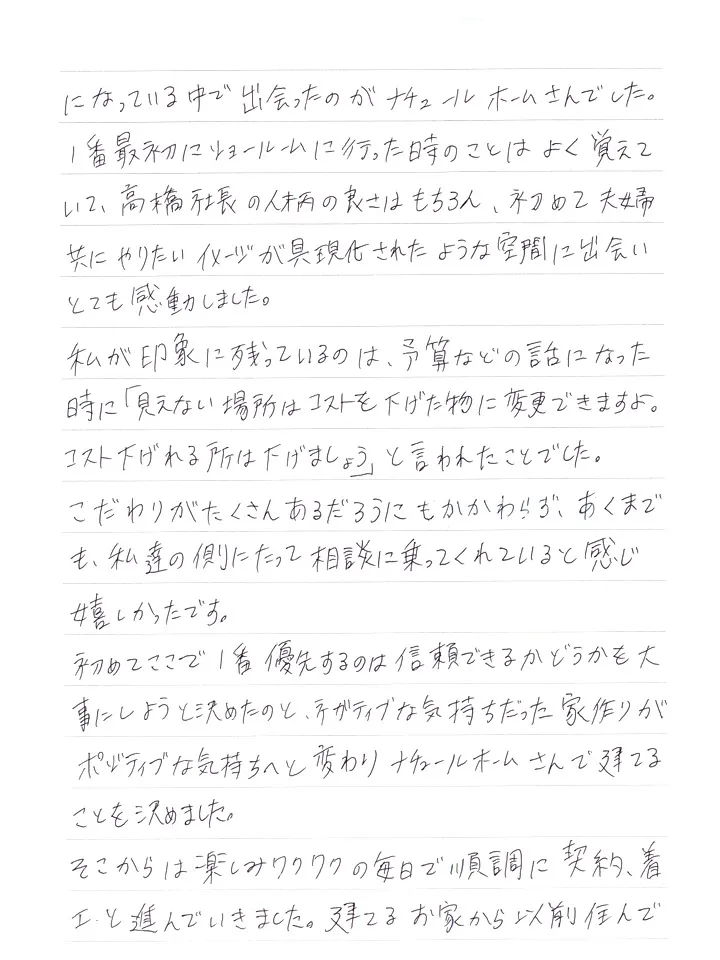 になっている中で出会ったのがナチュールホームさんでした。
1番最初にショールームに行った時のことはよく覚えて
いて、高橋社長の人柄の良さはもちろん、初めて夫婦
共にやりたいイメージが具現化されたような空間に出会い
とても感動しました。
私が印象に残っているのは、予算などの話になった
時に「見えない場所はコストを下げた物に変更できますよ。
コスト下げれる所は下げましょう」と言われたことでした。
こだわりがたくさんあるだろうにもかかわらず、あくまで
も、私達の側にたって相談に乗ってくれていると感じ
嬉しかったです。
初めてここで1番優先するのは信頼できるかどうかを大
事にしようと決めたのと、ネガティブな気持ちだった家作りが
ポジティブな気持ちへと変わりナチュールホームさんで建てる
ことを決めました。
そこからは楽しみワクワクの毎日で順調に契約、着
工と進んでいきました。建てるお家から以前住んで